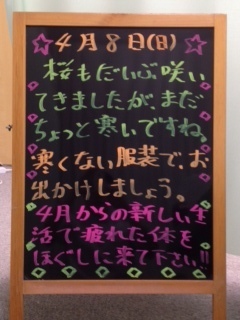 4月8日(日)
桜もだいぶ咲い
てきましたが、まだ
ちょっと寒いですね。
寒くない服装で、お
出かけしましょう。
4月からの新しい生
活で疲れた体を
ほぐしに来て下さい!!